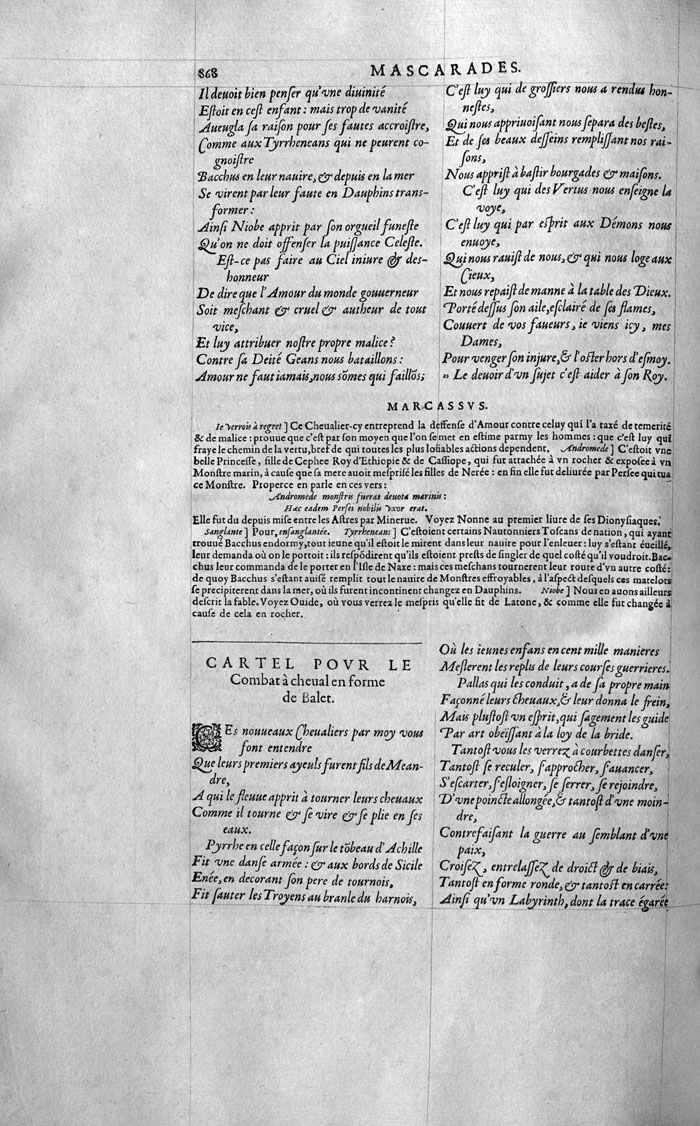 868
MASCARADES.
Il deuoit bien penser qu'vne diuinité
Estoit en cest enfant : mais trop de vanité
Aueugla sa raison pour ses fautes accroistre,
Comme aux Tyrrheneans qui ne peurent co-
gnoistre
Bacchus en leur nauire, & depuis en la mer
Se virent par leur faute en Dauphins trans-
former :
Ainsi Niobe apprit par son orgueil funeste
Qu'on ne doit offenser la puissance Celeste.
Est-ce pas faire au Ciel iniure & des-
honneur
De dire que l'Amour du monde gouuerneur
Soit meschant & cruel & autheur de tout
vice,
Et luy attribuer nostre propre malice ?
Contre sa Deité Geans nous bataillons :
Amour ne faut iamais, nous sõmes qui faillõs;
C'est luy qui de grossiers nous a rendus hon-
nestes,
Qui nous appriuoisant nous separa des bestes,
Et de ses beaux desseins remplissant nos rai-
sons,
Nous apprist à bastir bourgades & maisons.
C'est luy qui des Vertus nous enseigne la
voye,
C'est luy qui par esprit aux Démons nous
enuoye,
Qui nous rauist de nous, & qui nous loge aux
Cieux,
Et nous repaist de manne à la table des Dieux.
Porté dessus son aile, esclairé de ses flames,
Couuert de vos faueurs, ie viens icy, mes
Dames,
Pour venger son injure, & l'oster hors d'esmoy.
" Le deuoir d'vn sujet c'est aider à son Roy.
MARCASSVS.
Ie verrois à regret ] Ce Cheualier-cy entreprend la deffense d'Amour contre celuy qui l'a taxé de temerité
& de malice : prouue que c'est par son moyen que l'on se met en estime parmy les hommes : que c'est luy qui
fraye le chemin de la vertu, bref de qui toutes les plus loüables actions dependent. Andromede ] C'estoit vne
belle Princesse, fille de Cephee Roy d'Ethiopie & de Cassiope, qui fut attachée à vn rocher & exposée à vn
Monstre marin, à cause que sa mere auoit mesprisé les filles de Nerée : en fin elle fut deliurée par Persée qui tua
ce Monstre. Properce en parle en ces vers :
Andromede monstris fuerat deuota marinis :
Hac eadem Persei nobilis vxor erat.
Elle fut du depuis mise entre les Astres par Minerue. Voyez Nonne au premier liure de ses Dionysiaques.
Sanglante ] Pour, ensanglantée. Tyrrheneans ] C'estoient certains Nautonniers Toscans de nation, qui ayant
trouué Bacchus endormy, tout ieune qu'il estoit le mirent dans leur nauire pour l'enleuer : luy s'estant éueillé,
leur demanda où on le portoit : ils respõdirent qu'ils estoient prests de singler de quel costé qu'il voudroit. Bac-
chus leur commanda de le porter en l'Isle de Naxe : mais ces meschans tournerent leur route d'vn autre costé :
de quoy Bacchus s'estant auisé remplit tout le nauire de Monstres effroyables, à l'aspect desquels ces matelots
se precipiterent dans la mer, où ils furent incontinent changez en Dauphins. Niobe ] Nous en auons ailleurs
descrit la fable. Voyez Ouide, où vous verrez le mespris qu'elle fit de Latone, & comme elle fut changée à
cause de cela en rocher.
CARTEL POVR LE
Combat à cheual en forme
de Balet.
CEs nouueaux Cheualiers par moy vous
font entendre
Que leurs premiers ayeuls furent fils de Mean-
dre,
A qui le fleuue apprit à tourner leurs cheuaux
Comme il tourne & se vire & se plie en ses
eaux.
Pyrrhe en celle façon sur le tõbeau d'Achille
Fit vne danse armée : & aux bords de Sicile
Enée, en decorant son pere de tournois,
Fit sauter les Troyens au branle du harnois,
Où les ieunes enfans en cent mille manieres
Meslerent les replis de leurs courses guerrieres.
Pallas qui les conduit, a de sa propre main
Façonné leurs cheuaux, & leur donna le frein,
Mais plustost vn esprit, qui sagement les guide
Par art obeïssant à la loy de la bride.
Tantost vous les verrez à courbettes danser,
Tantost se reculer, s'approcher, s'auancer,
S'escarter, s'esloigner, se serrer, se rejoindre,
D'vne poincte allongée, & tantost d'vne moin-
dre,
Contrefaisant la guerre au semblant d'vne
paix,
Croisez, entrelassez de droict & de biais,
Tantost en forme ronde, & tantost en carrée :
Ainsi qu'vn Labyrinth, dont la trace égarée